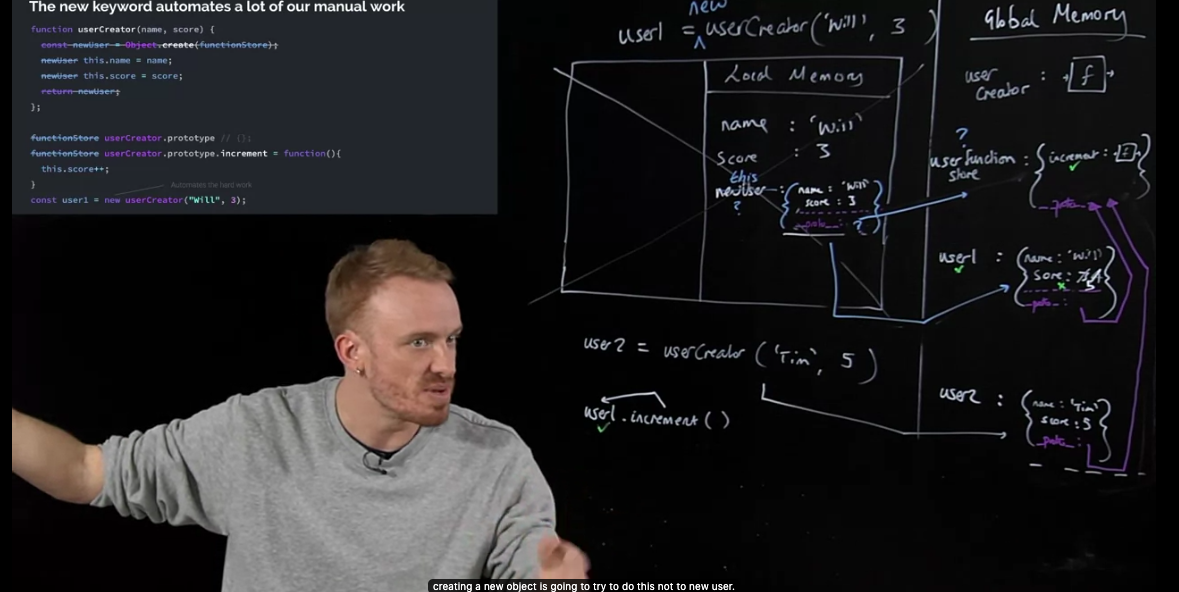 The new keyword automates a lot of our manual work
function userCreator(name, score) {
const newUser = Object.create(functionStore);
newUser this.name = name;
newUser this.score = score;
return newUser;
};
functionStore userCreator.prototype // {};
functionStore userCreator.prototype.increment = function(){
this.score++;
}
Automates the hard work
const user1 = new userCreator("Will", 3);
new
user1 = userCreator('Will', 3)
Local Memory
name : 'Will'
score : 3
this
newUser :
?
{name : 'Will'
score : 3
__proto__ : ? }
user2 = userCreator ('Tim', 5)
user1.increment()
Global Memory
user Creator : f
?
userFunction store : { increment : f }
__proto__
user1 : {name : 'Will'
score : 5
__proto__ : }
user2 : {name : 'Tim'
score : 5
__proto__ : }
creating a new object is going to try to do this not to new user.